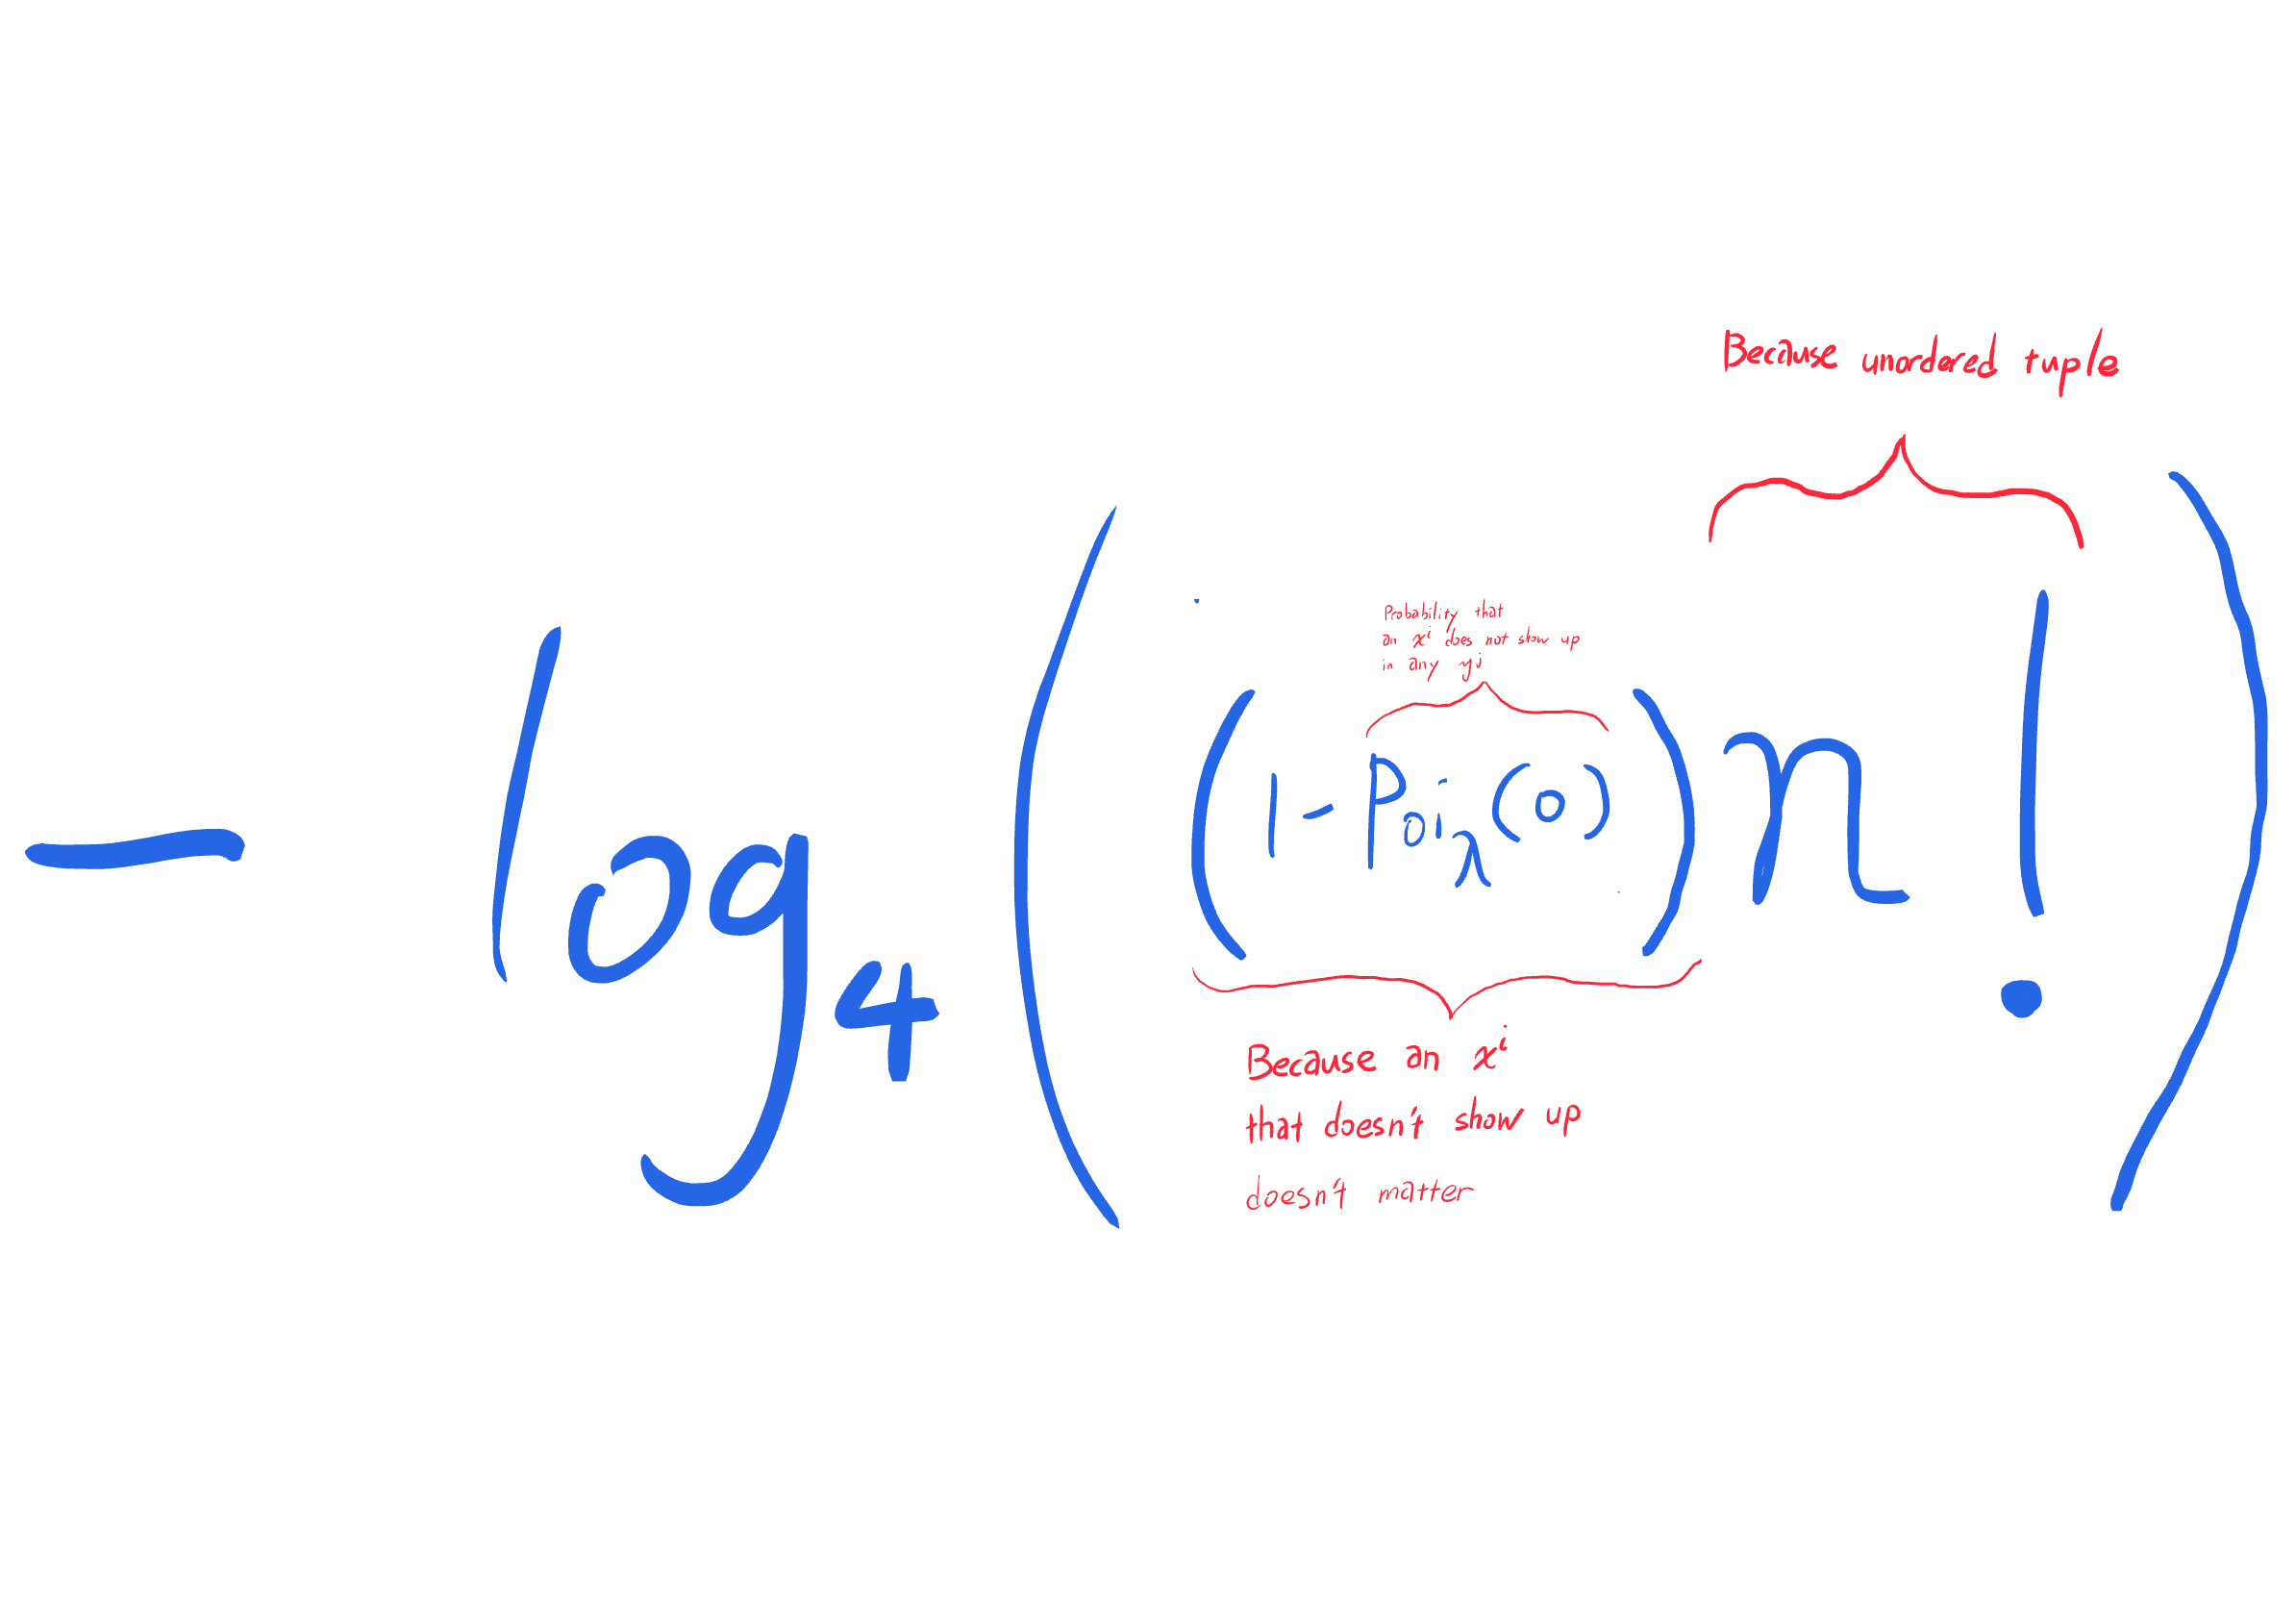 Because unordered tuple
Probability that
an xⁱ does not show up
in any yʲ
− log₄ ( (1 − Poi_λ(0)) n! )
Because an xⁱ
that doesn't show up
doesn't matter